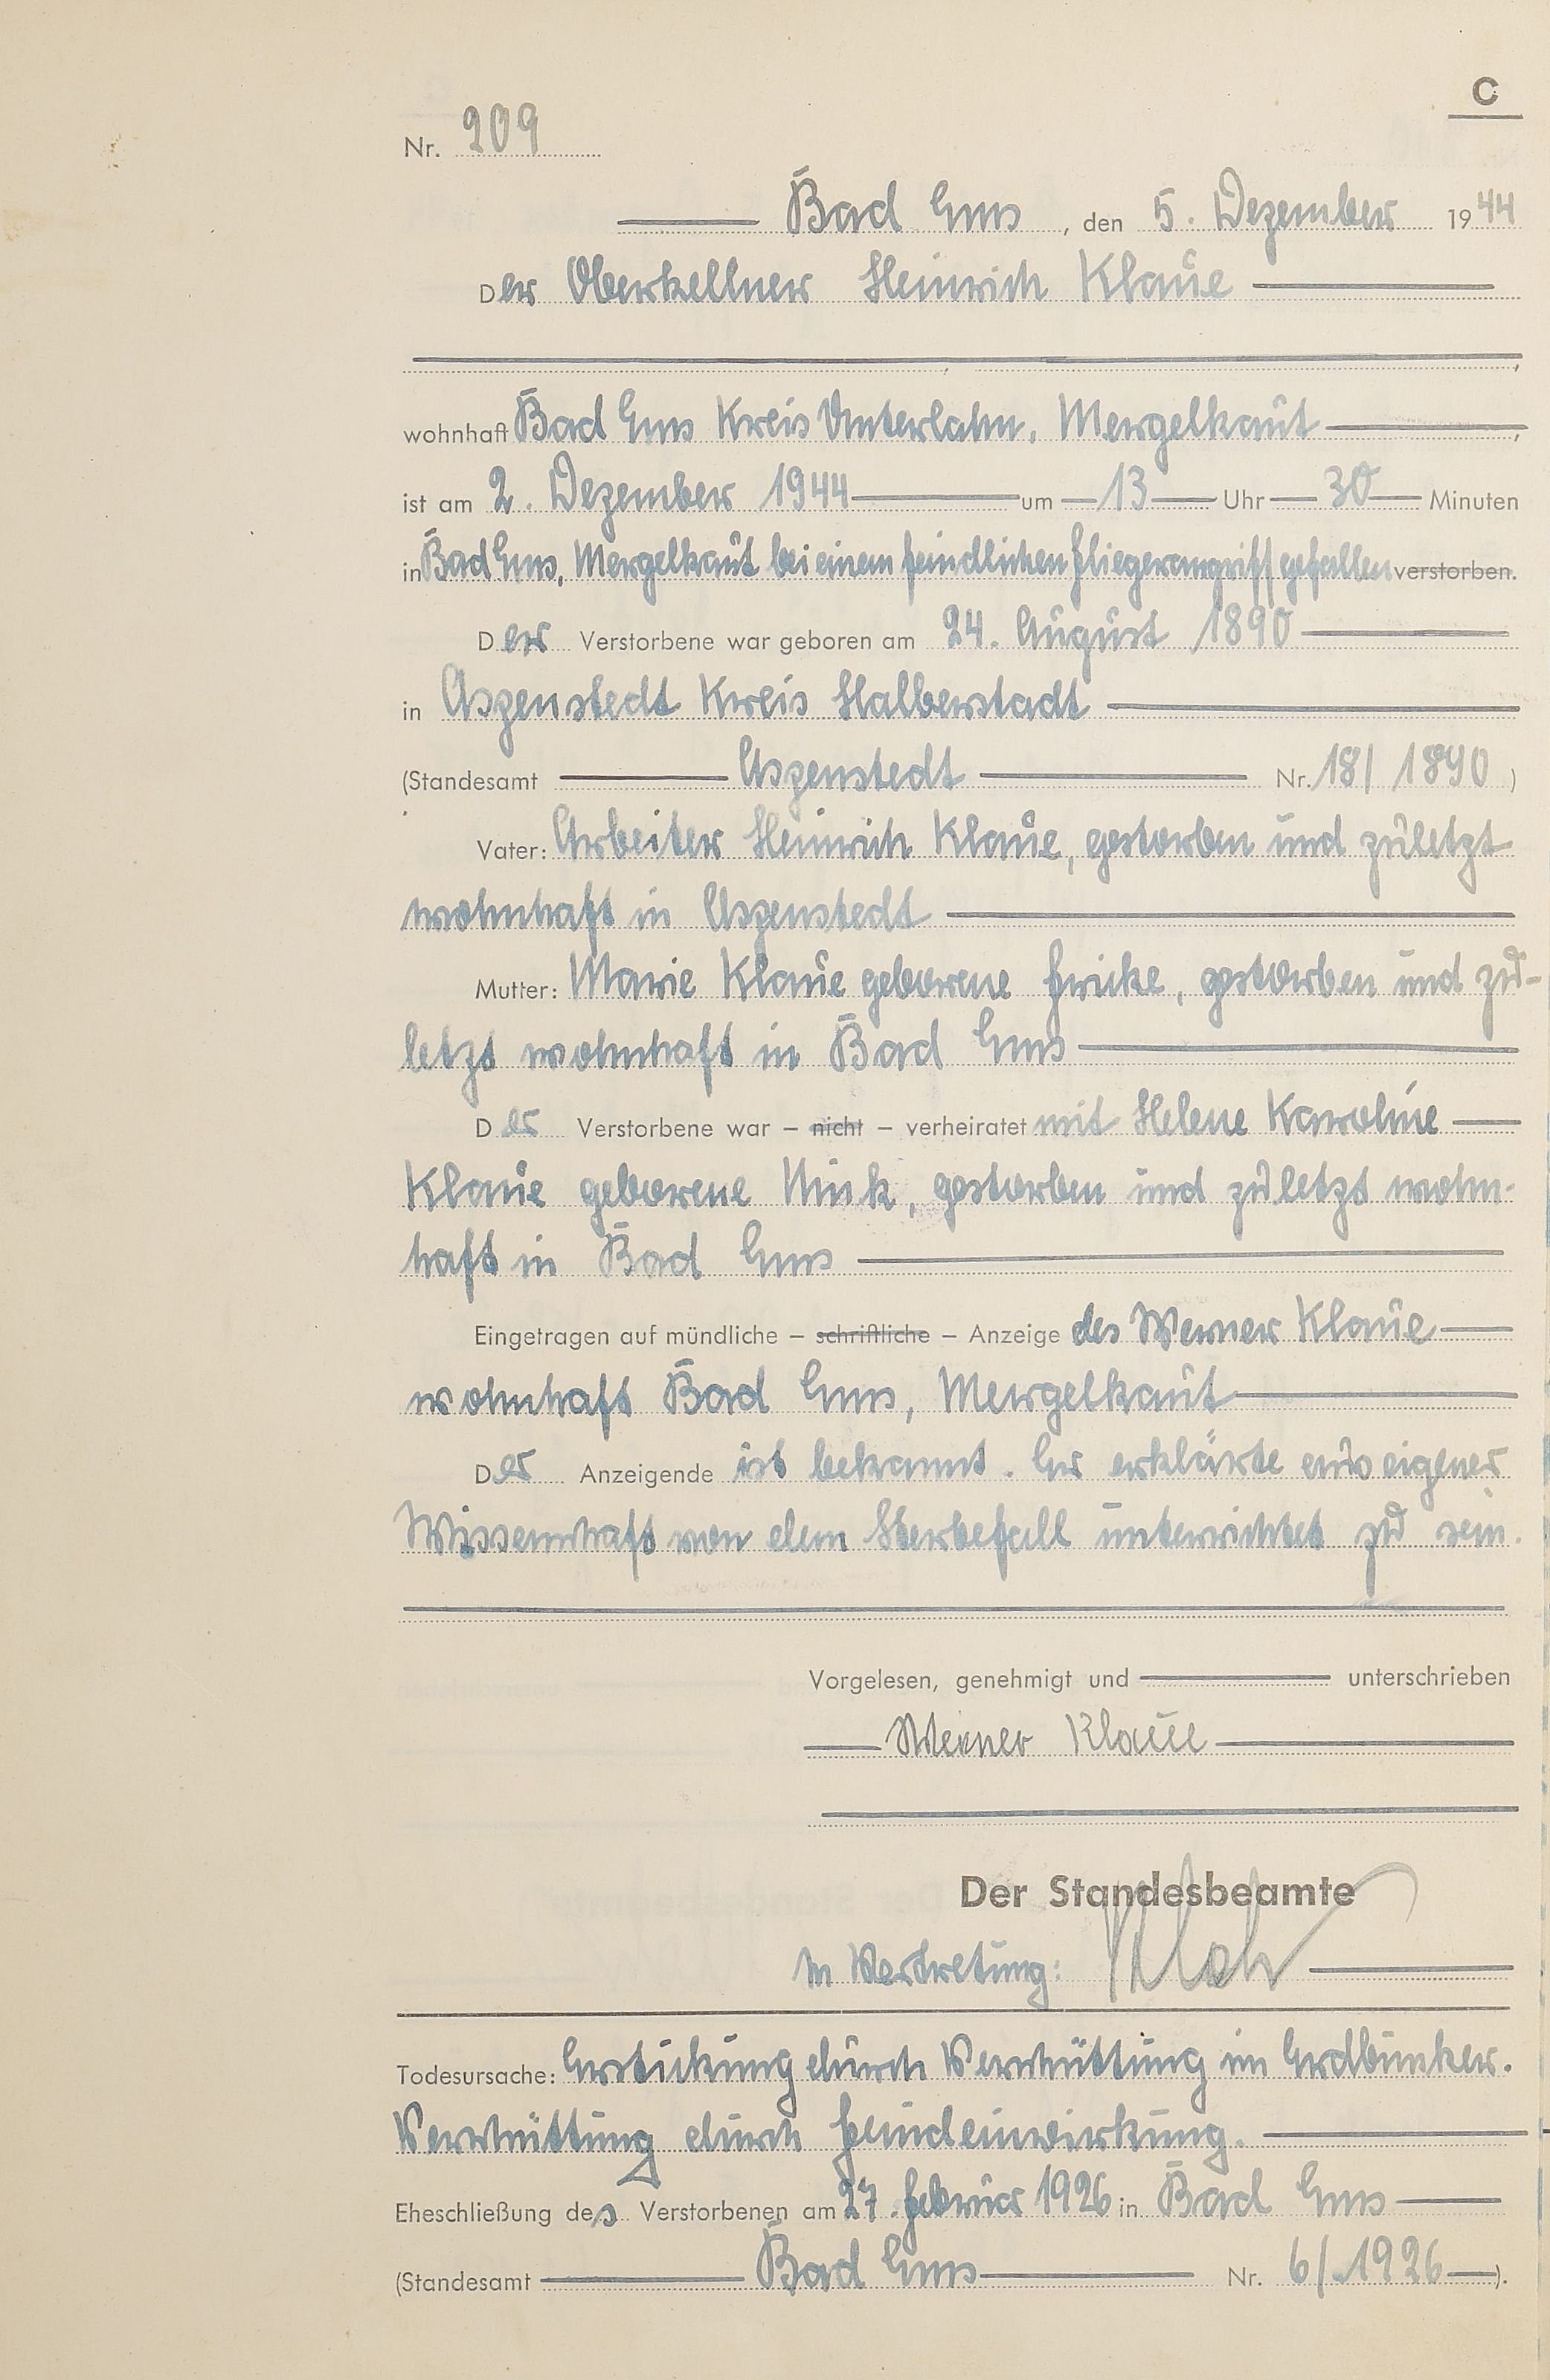 C
Nr. 209
Bad Ems, den 5. Dezember 1944
Der Oberkellner Heinrich Klaue
wohnhaft Bad Ems Kreis Unterlahn, Mergelkaut,
ist am 2. Dezember 1944 um 13 Uhr 30 Minuten
in Bad Ems, Mergelkaut bei einem feindlichen Fliegerangriff gefallen verstorben.
Der Verstorbene war geboren am 24. August 1890
in Aspenstedt Kreis Halberstadt
(Standesamt Aspenstedt Nr. 18/1890)
Vater: Arbeiter Heinrich Klaue, gestorben und zuletzt
wohnhaft in Aspenstedt
Mutter: Marie Klaue geborene Fricke, gestorben und zu-
letzt wohnhaft in Bad Ems
Der Verstorbene war – nicht – verheiratet mit Helene Karoline
Klaue geborene Nink, gestorben und zuletzt wohn-
haft in Bad Ems
Eingetragen auf mündliche – schriftliche – Anzeige des Werner Klaue
wohnhaft Bad Ems, Mergelkaut
Der Anzeigende ist bekannt. Er erklärte aus eigener
Wissenschaft von dem Sterbefall unterrichtet zu sein.
Vorgelesen, genehmigt und unterschrieben
Werner Klaue
Der Standesbeamte
In Vertretung:
Todesursache: Erstickung durch Verschüttung im Erdbunker.
Verschüttung durch Feindeinwirkung.
Eheschließung des Verstorbenen am 27. Februar 1926 in Bad Ems
(Standesamt Bad Ems Nr. 6/1926).